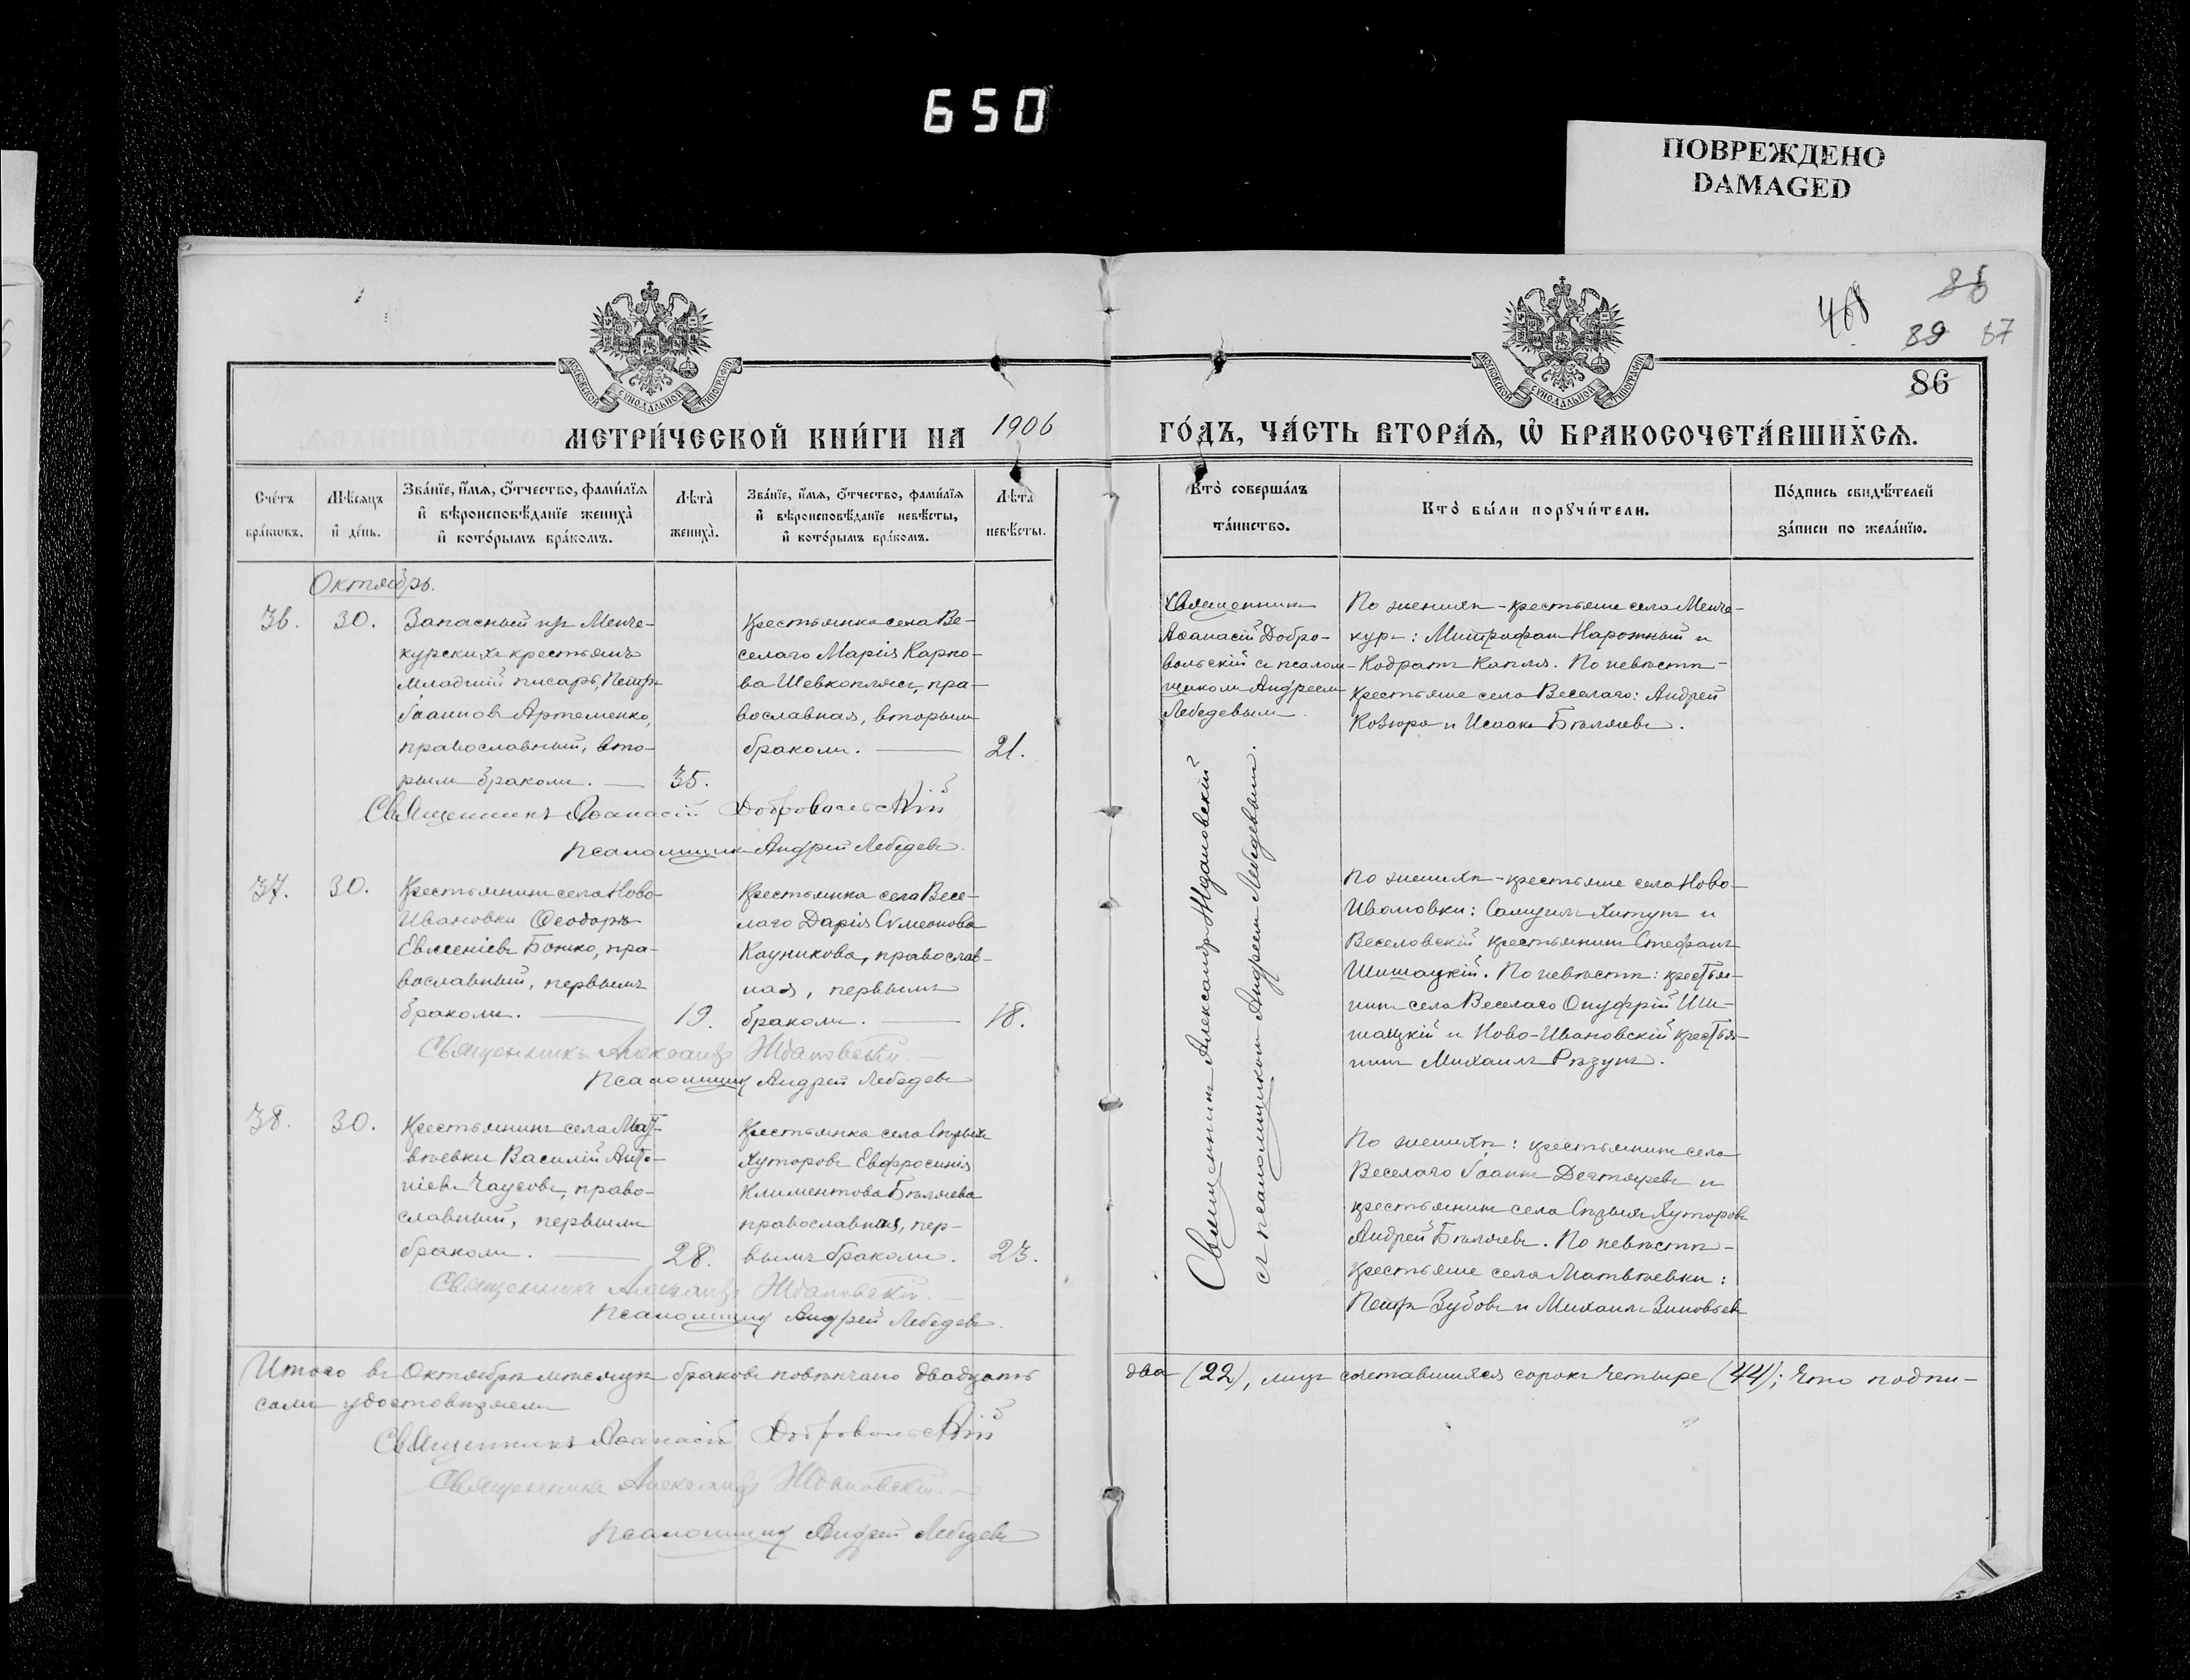 650
ПОВРЕЖДЕНО
DAMAGED
468
86
89 87
86
МОСКОВСКОЙ СѴНОДАЛЬНОЙ ТИПОГРАФІИ
МОСКОВСКОЙ СѴНОДАЛЬНОЙ ТИПОГРАФІИ
МЕТРИ́ЧЕСКОЙ КНИ́ГИ НА 1906
ГО́ДЪ, ЧА́СТЬ ВТОРА́Ѧ, Ѡ БРАКОСОЧЕТА́ВШИХСѦ.
Сче́тъ
бра́кѡвъ.
Мѣ́сѧцъ
и҆ де́нь.
Зва́нїе, и҆́мѧ, ѻ҆́тчество, фами́лїѧ
и҆ вѣроисповѣ́данїе жениха̀
и҆ кото́рымъ бра́комъ.
Лѣ́та̀
жениха̀.
Зва́нїе, и҆́мѧ, ѻ҆́тчество, фами́лїѧ
и҆ вѣроисповѣ́данїе невѣ́сты,
и҆ кото́рымъ бра́комъ.
Лѣ́та̀
невѣ́сты.
Кто̀ соверша́лъ
та́инство.
Кто̀ бы́ли порꙋчи́тели.
По́дпись свидѣ́телей
за́писи по жела́нїю.
Октябрь.
36.
30.
Запасный изъ Менче-
курскихъ крестьянъ
младшій писарь, Петръ
Іоанновъ Артеменко,
православный, вто-
рымъ бракомъ.
35.
Крестьянка села Ве-
селаго Марія Карпо-
ва Шевкопляс, пра-
вославная, вторымъ
бракомъ.
21.
Священникъ
Аѳанасій Добро-
вольскій съ псалом-
щикомъ Андреемъ
Лебедевымъ.
По женихѣ - крестьяне села Менче-
куръ: Митрофанъ Нарожный и
Кодратъ Капля. По невѣстѣ -
крестьяне села Веселаго: Андрей
Ковюра и Исаакъ Бѣляевъ.
Священникъ Аѳанасій Добровольскій
Псаломщикъ Андрей Лебедевъ.
37.
30.
Крестьянинъ села Ново-
Ивановки Ѳеодоръ
Евменіевъ Божко, пра-
вославный, первымъ
бракомъ.
19.
Крестьянка села Весе-
лаго Дарія Сѵмеонова
Кауникова, православ-
ная, первымъ
бракомъ.
18.
Священникъ Александръ Ждановскій
съ псаломщикомъ Андреемъ Лебедевымъ.
По женихѣ - крестьяне села Ново-
Ивановки: Самуилъ Хитунъ и
Веселовскій крестьянинъ Стефанъ
Шишацкій. По невѣстѣ: крестья-
нинъ села Веселаго Онуфрій Ши-
шацкій и Ново-Ивановскій крестья-
нинъ Михаилъ Рѣзунъ.
Священникъ Александръ Ждановскій.
Псаломщикъ Андрей Лебедевъ
38.
30.
Крестьянинъ села Мат-
вѣевки Василій Анто-
ніевъ Чаусовъ, право-
славный, первымъ
бракомъ.
28.
Крестьянка села Сѣрыхъ
Хуторовъ Евфросинія
Климентова Бѣляева
православная, пер-
вымъ бракомъ.
23.
По женихѣ: крестьянинъ села
Веселаго Іоаннъ Дегтяревъ и
крестьянинъ села Сѣрыхъ Хуторовъ
Андрей Бѣляевъ. По невѣстѣ -
крестьяне села Матвѣевки:
Петръ Зубовъ и Михаилъ Зиновьевъ
Священникъ Александръ Ждановскій.
Псаломщикъ Андрей Лебедевъ.
Итого въ Октябрѣ мѣсяцѣ браковъ повѣнчано двадцать два (22), лицъ сочетавшихся сорокъ четыре (44); что подпи-
сами удостовѣряемъ
Священникъ Аѳанасій Добровольскій
Священникъ Александръ Ждановскій.
Псаломщикъ Андрей Лебедевъ